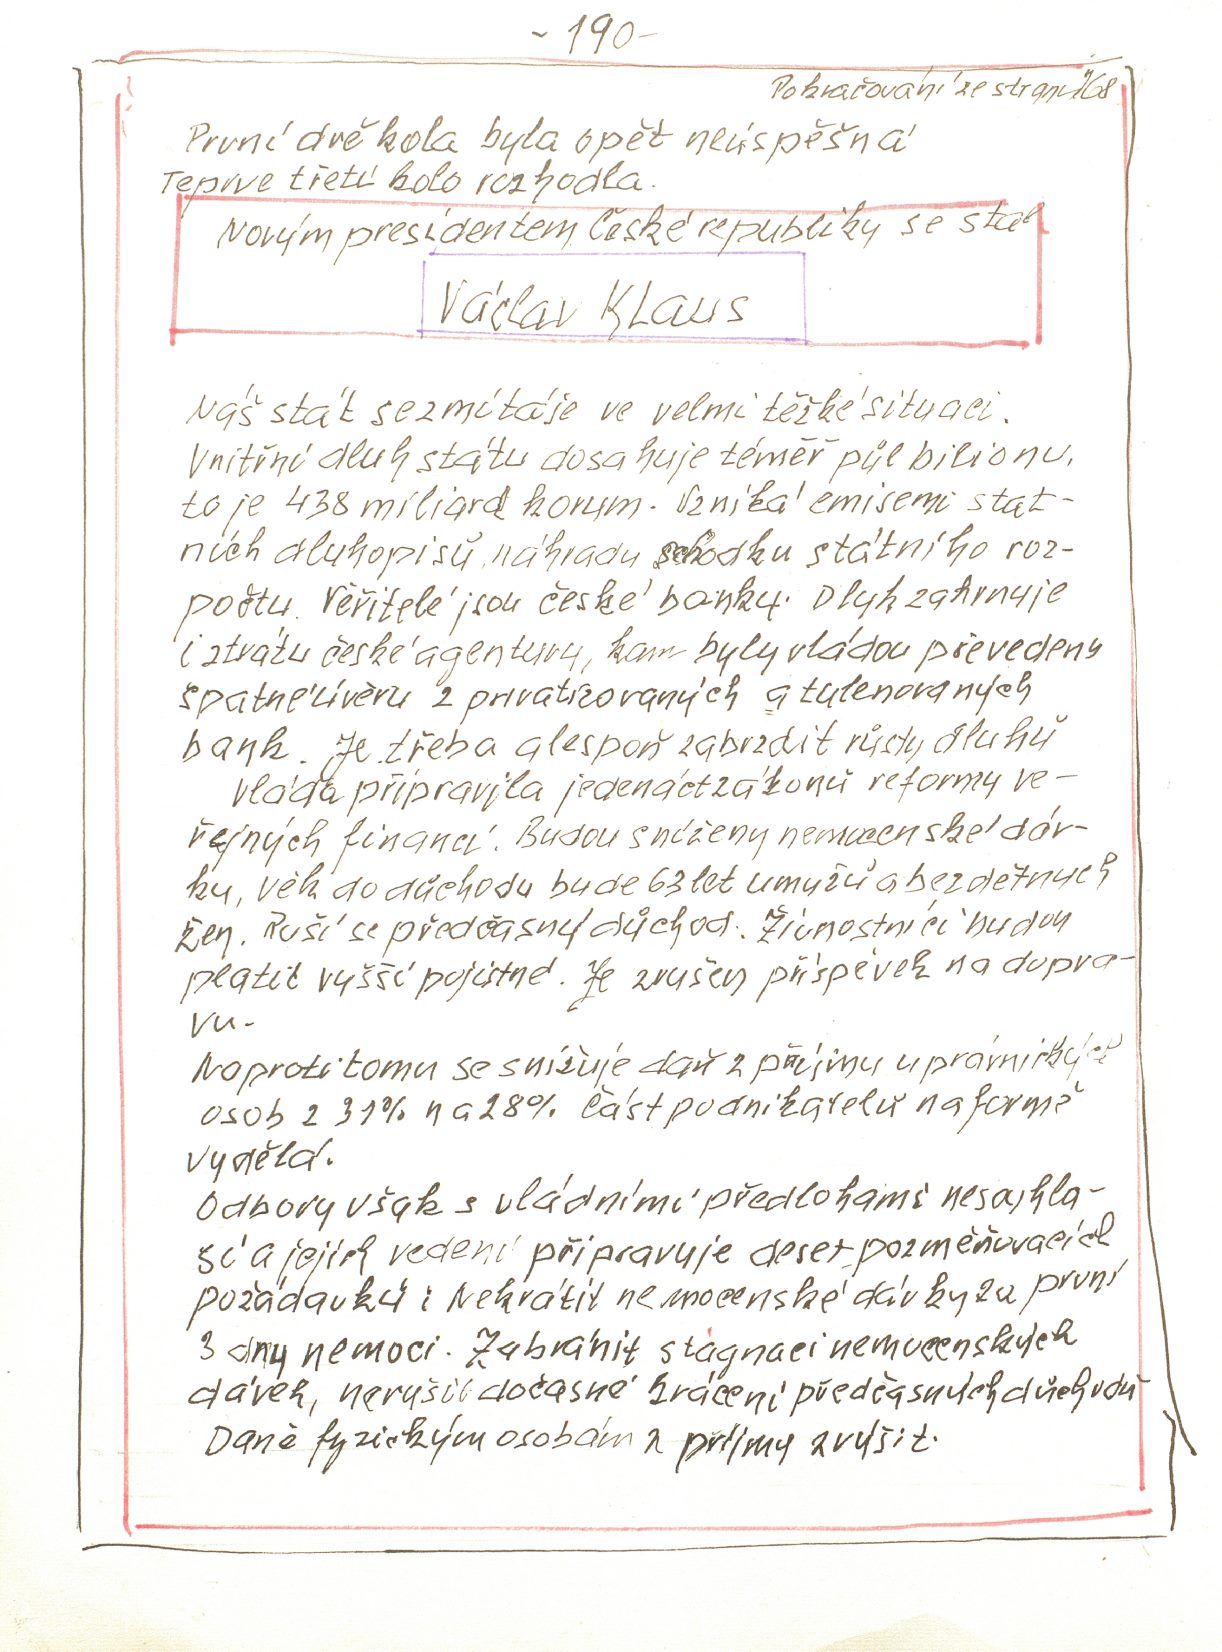 - 190 -
Pokračování ze strany 168
První dvě kola byla opět neúspěšná
Teprve třetí kolo rozhodla.
Novým presidentem České republiky se stal
Václav Klaus
Náš stát se zmítáše ve velmi těžké situaci.
Vnitřní dluh státu dosahuje téměř půl bilionu,
to je 438 miliard korum. Vzniká emisemi stát-
ních dluhopisů, náhradu schodku státního roz-
počtu. Věřitelé jsou české banky. Dluh zahrnuje
i ztrátu české agentury, kam byly vládou převedeny
špatné úvěru z privatizovaných a tulenovaných
bank. Je třeba alespoň zabrzdit růsty dluhů
Vláda připravila jedenáct zákonů reformy ve-
řejných financí. Budou sníženy nemocenské dáv-
ky, věk do důchodu bude 63 let u mužů a bezdětnych
žen. Ruší se předčasný důchod. Živnostníci budou
platit vyšší pojistné. Je zrušen příspěvek na dopra-
vu.
Naproti tomu se snižuje daň z příjmu u právnických
osob z 31% na 28%. Část podnikatelů na formě
vydělá.
Odbory však s vládními předlohami nesouhla-
sí a jejich vedení připravuje deset pozměňovacích
požadavků: Nekrátit nemocenské dávky za první
3 dny nemoci. Zabránit stagnaci nemocenských
dávek, nerušit dočasné krácení předčasných důchodů
Daně fyzickým osobám z příjmy zvýšit.